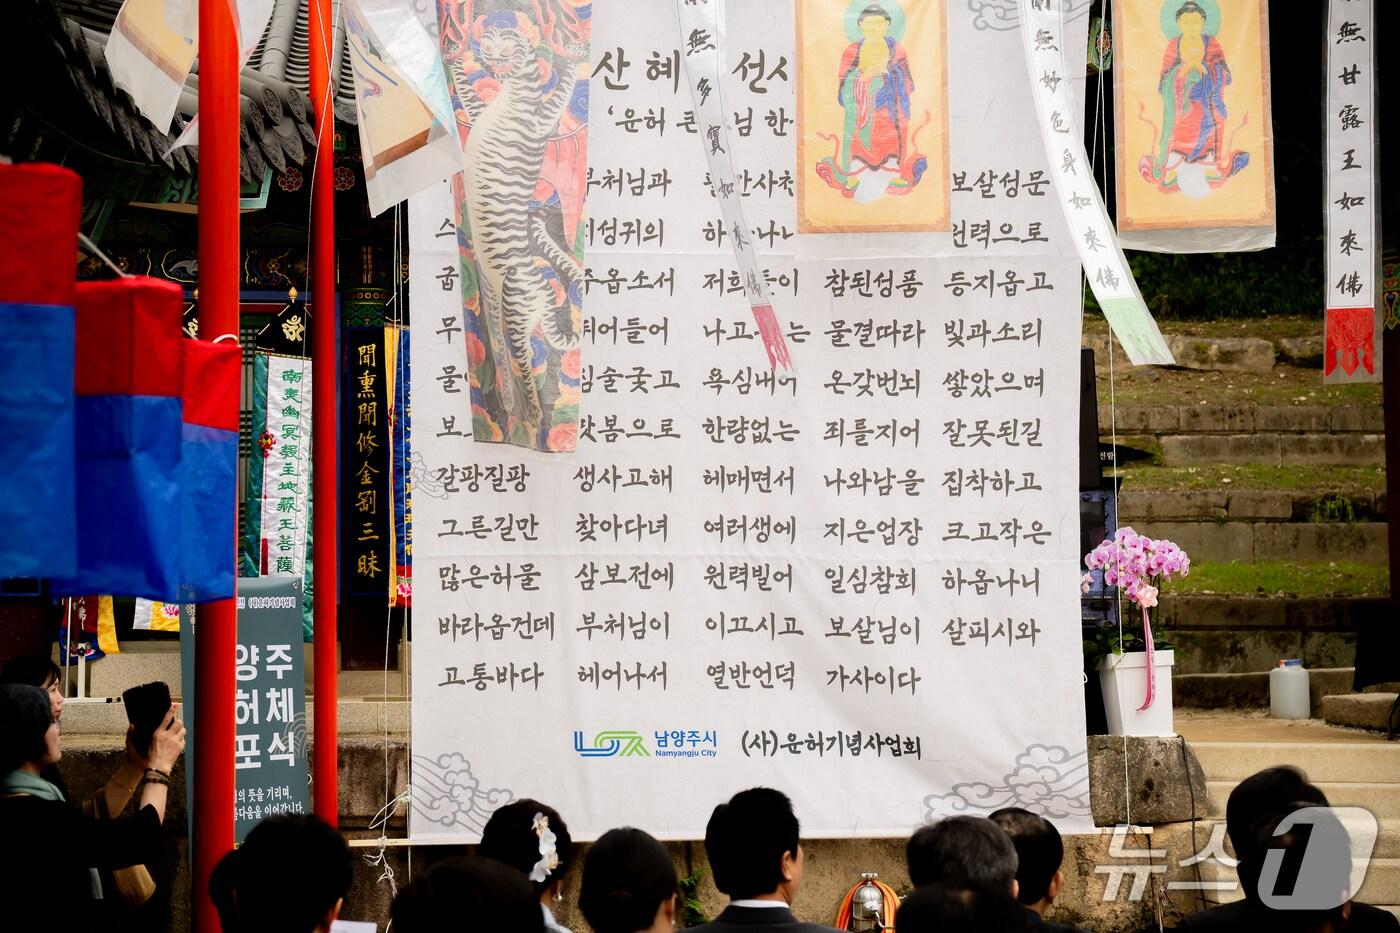 산혜 선시
‘윤허 큰 님 한
부처님과 보살성문
하 나니 원력으로
굽 주옵소서 저희들이 참된성품 등지옵고
무 뛰어들어 나고 는 물결따라 빛과소리
물 심술궂고 욕심내어 온갖번뇌 쌓았으며
보 맛봄으로 한량없는 죄를지어 잘못된길
갈팡질팡 생사고해 헤매면서 나와남을 집착하고
그른길만 찾아다녀 여러생에 지은업장 크고작은
많은허물 삼보전에 원력빌어 일심참회 하옵나니
바라옵건데 부처님이 이끄시고 보살님이 살피시와
고통바다 헤어나서 열반언덕 가사이다
남양주시
Namyangju City
(사)운허기념사업회
無多寶如來佛
無妙色身如來佛
無甘露王如來佛
聞熏聞修金剛三昧
南無幽冥教主地藏王菩薩
(사)운허기념사업회
양주
허체
포식
의 뜻을 기리며,
름다움을 이어갑니다.
전함
뉴스1